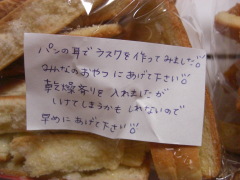 パンの耳でラスクを作ってみました。
みんなのおやつにあげて下さい。
乾燥剤りを入れましたが
しけてしまうかもしれないので
早めにあげて下さい。